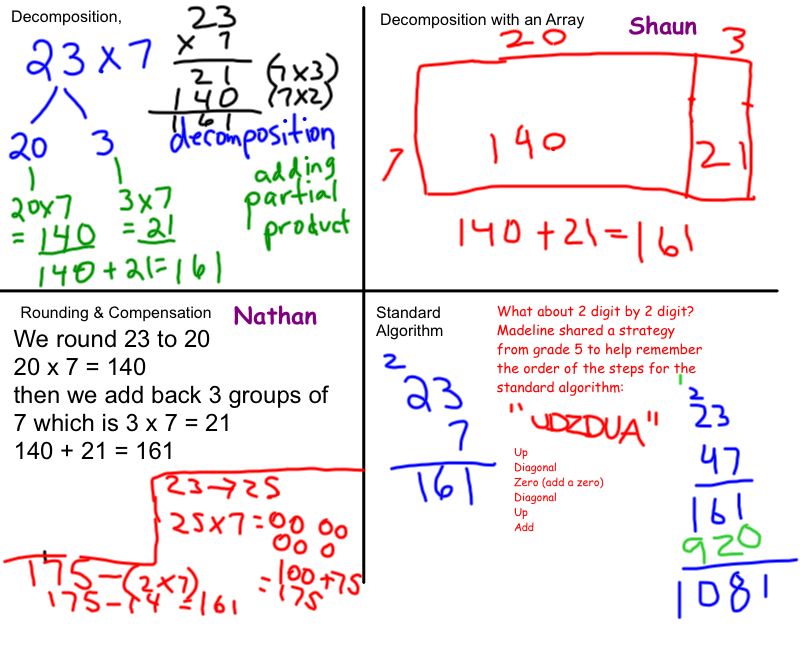 Decomposition,
23 x 7
20 3
20x7
= 140
3x7
= 21
140 + 21 = 161
23
x 7
21 (7x3)
140 (7x2)
161
decomposition
adding
partial
product
Decomposition with an Array
Shaun
20 3
7 140 21
140 + 21 = 161
Rounding & Compensation
Nathan
We round 23 to 20
20 x 7 = 140
then we add back 3 groups of
7 which is 3 x 7 = 21
140 + 21 = 161
23 → 25
25 x 7 = 00 00
00 0
= 100 + 75
= 175
175 - (2 x 7)
175 - 14 = 161
Standard
Algorithm
2
23
7
161
What about 2 digit by 2 digit?
Madeline shared a strategy
from grade 5 to help remember
the order of the steps for the
standard algorithm:
"UDZDUA"
Up
Diagonal
Zero (add a zero)
Diagonal
Up
Add
1
2
23
47
161
920
1081